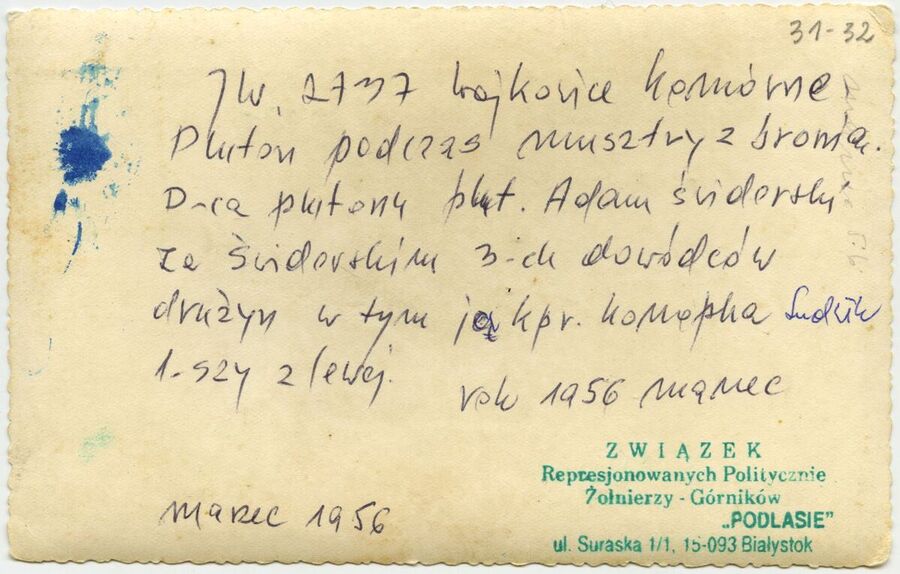 31-32
JW. 2737 Wojkowice Komorne
Pluton podczas musztry z bronią.
D-ca plutonu plut. Adam Świderski
za Świderskim 3-ch dowódców
drużyn w tym ja kpr. Konopka Ludwik
1-szy z lewej.
rok 1956 marzec
marzec 1956
ZWIĄZEK
Represjonowanych Politycznie
Żołnierzy - Górników
„PODLASIE”
ul. Suraska 1/1, 15-093 Białystok